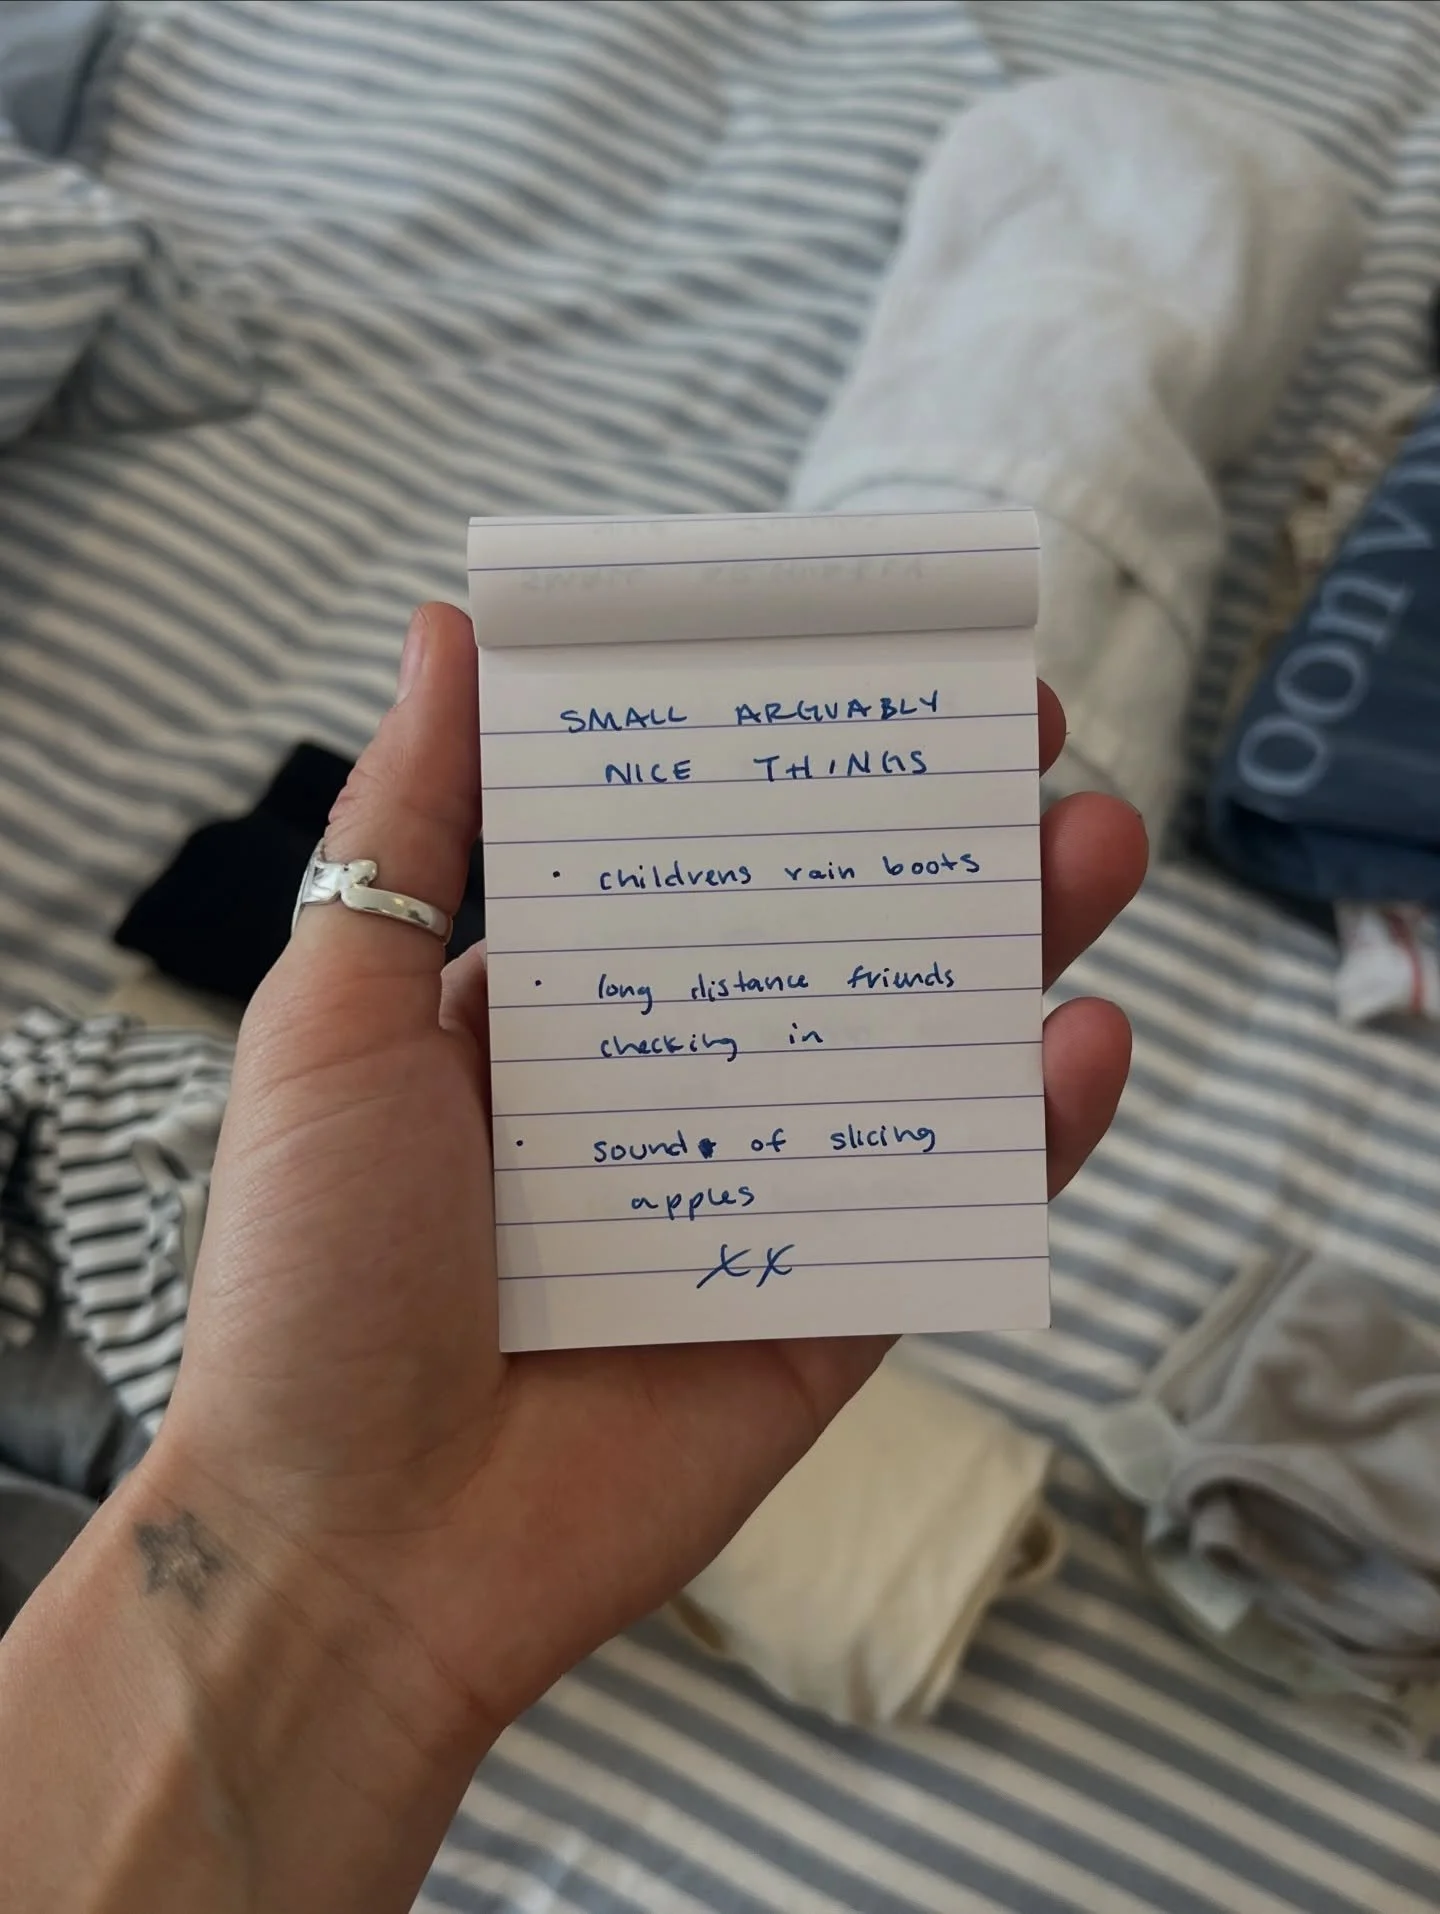 SMALL ARGUABLY
NICE THINGS
• childrens rain boots
• long distance friends
checking in
• sound of slicing
apples
xx